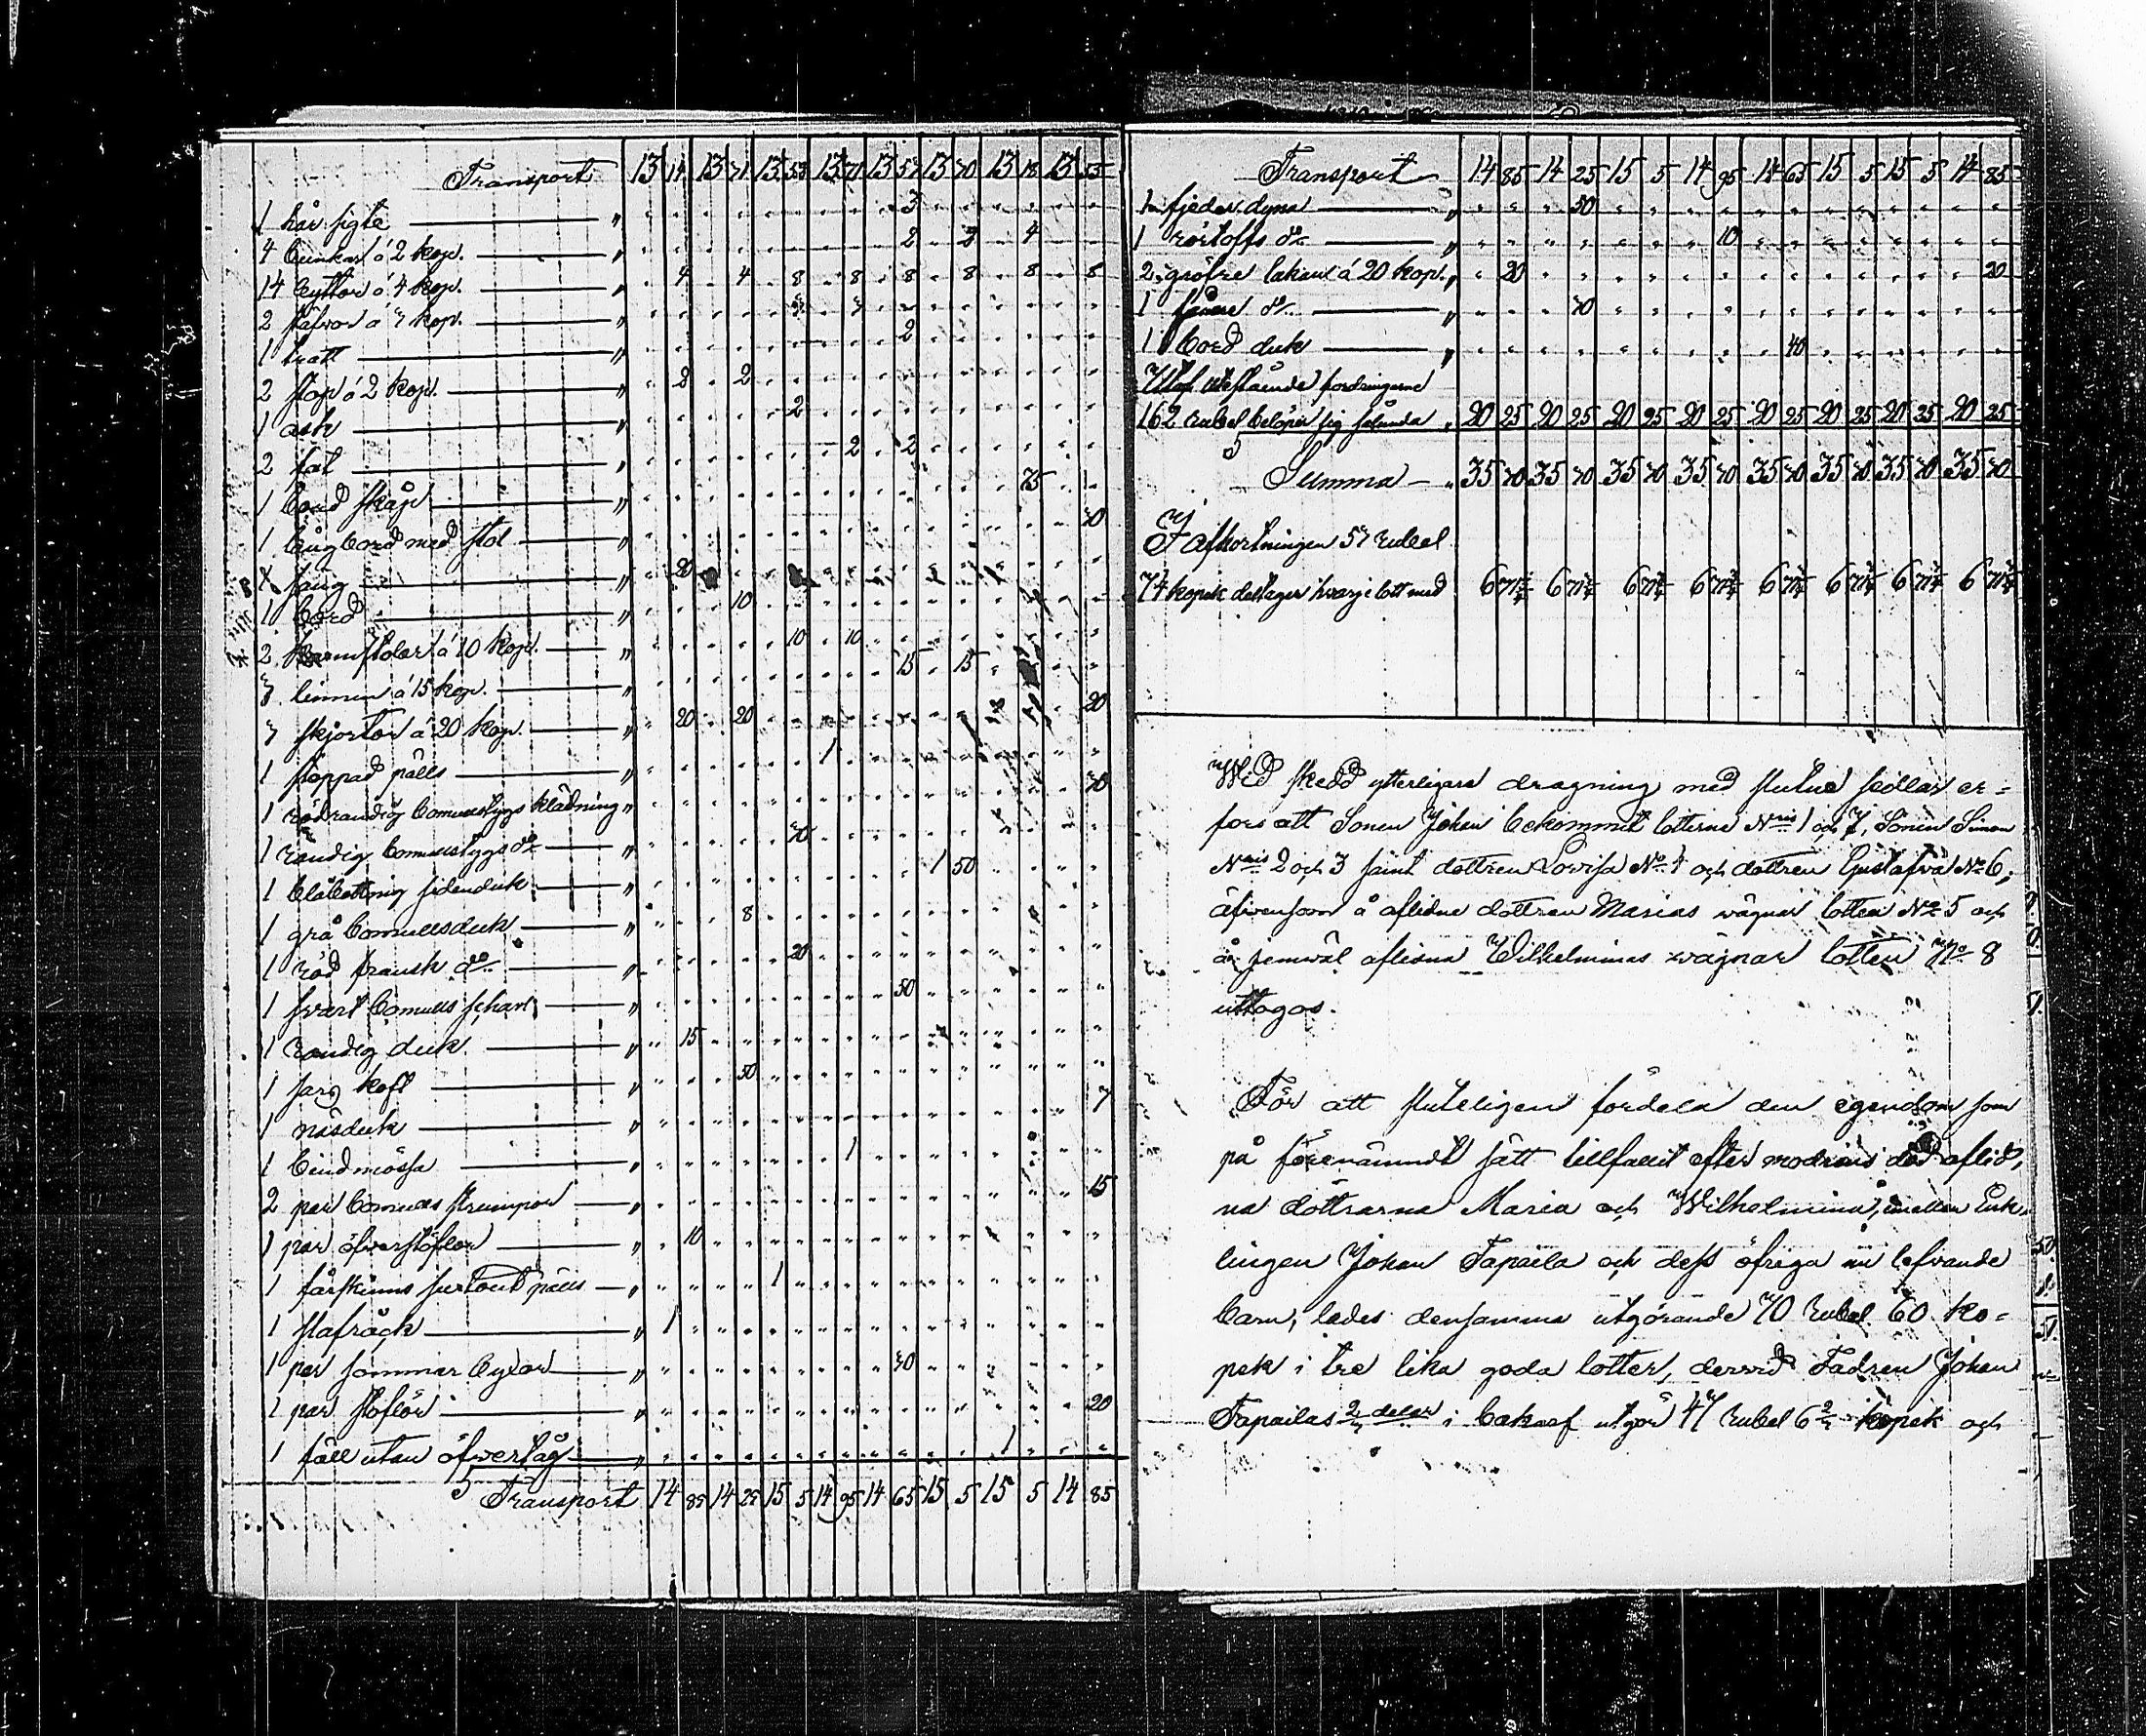 Transport 13 14 13 71 13 53 13 71 13 57 13 70 13 18 13 55
1 hår sigte „ 3
4 bunkar á 2 kop. „ 2 2 4
14 byttor á 4 kop. „ 4 4 8 8 8 8 8 8
2 stäfvor á 7 kop. „ 7 7
1 tratt „ 2
2 stop á 2 kop. „ 2 2
1 ask „ 2
2 fat „ 2 2
1 bord skåp „ 75
1 lång bord med stol „ 70
1 säng „ 20
1 bord „ 10
2 karmstolar á 10 kop. „ 10 10
linnen á 15 kop. „ 15 15
skjortor á 20 kop. „ 20 20 20
1 stoppad pälls „ 1
1 rödrandig bomullstygs klädning „ 70
1 randig bomullstygs do „ 70
1 blåbottnig sidenduk „ 1 50
1 grå bomullsduk „ 8
1 röd fransk do „ 20
1 svart bomulls schavl „ 30
1 randig duk „ 15
1 sarg koft „ 50
1 näsduk „ 7
1 bindmössa „ 1
2 par bomulls strumpor „ 15
1 par öfverstöflor „ 10
1 fårskinns surtout pälls „ 1
1 slafråck „ 1
1 par sommar byxor „ 30
1 par stöflor „ 20
1 fäll utan öfvertåg „ 1
Transport 14 85 14 25 15 5 14 95 14 65 15 5 15 5 14 85
Transport 14 85 14 25 15 5 14 95 14 65 15 5 15 5 14 85
1 fjeder dyna „ 50
1 rörtofts do „ 10
2 gröfre lakan á 20 kop. „ 20 20
1 do „ 70
1 bord duk „ 40
Utaf utestående fordringarne
162 rubel belöper sig sålunda „ 20 25 20 25 20 25 20 25 20 25 20 25 20 25 20 25
Summa „ 35 70 35 70 35 70 35 70 35 70 35 70 35 70 35 70
I afkortningen 57 rubel
74 kopek deltager hvarje lott med 6 71¾ 6 71¾ 6 71¾ 6 71¾ 6 71¾ 6 71¾ 6 71¾ 6 71¾
Wid skedd ytterligare dragning med slutne sedlar er=
fors att Sonen Johan bekommit lotterne Nris 1 och 7, Sonen Simon
Nris 2 och 3 samt dottren Lovisa No 4 och dottren Gustafva No 6,
äfvensom å aflidne dottren Marias vägnar lotten No 5 och
å jemväl aflidna Wilhelminas vägnar lotten No 8
uttogos.
För att sluteligen fördela den egendom som
på förenämndt sätt tillfallit efter modrens död aflid,
na döttrarna Maria och Wilhelmina, emellan Enk,
lingen Johan Tapaila och dess öfriga nu lefvande
barn, lades densamma utgörande 70 rubel 60 ko=
pek i tre lika goda lotter, dervid Fadren Johan
Tapailas 2/3 delar i behåll utgör 47 rubel 6 2/3 kopek och